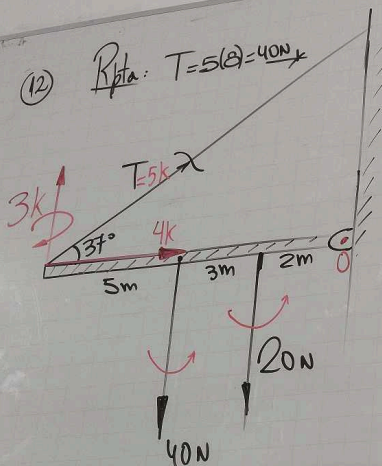 12 Rpta: T=5(8)=40N
T=5k
3k
37°
4k
5m 3m 2m O
20N
40N